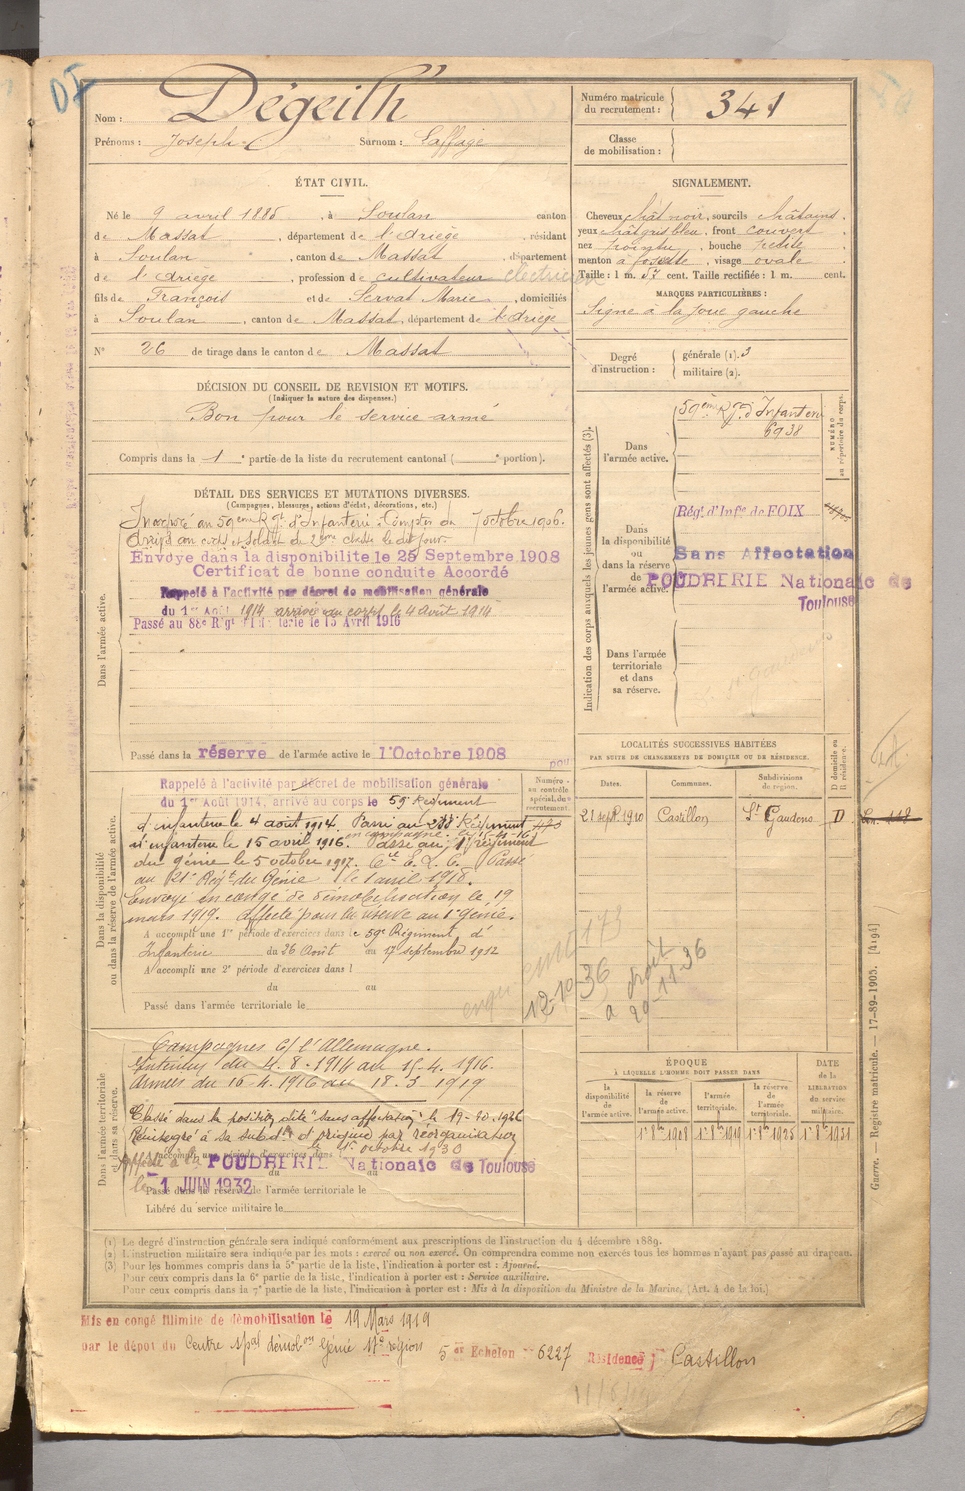 DE
Nom : Dégeilh
Prénoms : Joseph Surnom : Laffage
Numéro matricule du recrutement : 341
Classe de mobilisation :
ÉTAT CIVIL.
Né le 9 avril 1885, à Soulan canton
de Massat, département de l'Ariège, résidant
à Soulan, canton de Massat, département
de l'Ariège, profession de cultivateur électricien
fils de François et de Servat Marie, domiciliés
à Soulan, canton de Massat, département de l'Ariège
N° 26 de tirage dans le canton de Massat
SIGNALEMENT.
Cheveux chât noir, sourcils châtains,
yeux chât gris bleu, front couvert
nez pointu, bouche petite
menton à fossette, visage ovale
Taille : 1 m. 57 cent. Taille rectifiée : 1 m. cent.
MARQUES PARTICULIÈRES :
Signe à la joue gauche
Degré d'instruction : générale (1). 3
militaire (2).
DÉCISION DU CONSEIL DE REVISION ET MOTIFS.
(Indiquer la nature des dispenses.)
Bon pour le service armé
Compris dans la 1e partie de la liste du recrutement cantonal ( e portion).
DÉTAIL DES SERVICES ET MUTATIONS DIVERSES.
(Campagnes, blessures, actions d'éclat, décorations, etc.)
Dans l'armée active.
Incorporé au 59ème Rgt d'Infanterie. Compter du 7 octobre 1906.
Arrivé au corps et soldat de 2ème classe le dit jour.
Envoyé dans la disponibilite le 25 Septembre 1908
Certificat de bonne conduite Accordé
Rappelé à l'activité par décret de mobilisation générale
du 1er Août 1914 arrivé au corps le 4 Août 1914
Passé au 88e Régt d'Infanterie le 15 Avril 1916
Passé dans la réserve de l'armée active le 1 Octobre 1908
Indication des corps auxquels les jeunes gens sont affectés (3).
NUMÉRO au répertoire du corps.
Dans l'armée active.
59ème Rgt d'Infanterie
6938
Dans la disponibilité ou dans la réserve de l'armée active.
Régt d'Infie de FOIX
Sans Affectation
POUDRERIE Nationale de
Toulouse
Dans l'armée territoriale et dans sa réserve.
Dans la disponibilité ou dans la réserve de l'armée active.
Numéro au contrôle spécial du recrutement.
Rappelé à l'activité par décret de mobilisation générale
du 1er Août 1914, arrivé au corps le 59e Régiment
d'infanterie le 4 août 1914. Passé au 88e Régiment
d'infanterie le 15 avril 1916. Passé au 1er régiment
en campagne le 15-4-16
du génie le 5 octobre 1917. Cie E. L. C. Passé
au 21e Régt du Génie le 1 avril 1918.
Envoyé en congé de démobilisation le 19
mars 1919. Affecté pour la réserve au 1er génie.
A accompli une 1re période d'exercices dans le 59e Régiment d'
Infanterie du 26 Août au 17 septembre 1912
A accompli une 2e période d'exercices dans l
du au
Passé dans l'armée territoriale le
LOCALITÉS SUCCESSIVES HABITÉES
PAR SUITE DE CHANGEMENTS DE DOMICILE OU DE RÉSIDENCE.
Dates. Communes. Subdivisions de région. D domicile ou R résidence.
21 sept 1910 Castillon St Gaudens D
12-10-36
a droit
20-11-36
Dans l'armée territoriale et dans sa réserve.
Campagnes c/ l'Allemagne.
Intérieur du 4.8.1914 au 15.4.1916.
Armées du 16-4.1916 au 18.3.1919
Classé dans la position dite "sans affectation" le 19-10-1926
Réintégré à sa subdon d'origine par réorganisation
1er octobre 1930
A accompli une période d'exercices dans
Affecté à la POUDRERIE Nationale de Toulouse
du au
le 1 JUIN 1932
Passé dans la réserve de l'armée territoriale le
Libéré du service militaire le
ÉPOQUE
À LAQUELLE L'HOMME DOIT PASSER DANS
la disponibilité de l'armée active. la réserve de l'armée active. l'armée territoriale. la réserve de l'armée territoriale. DATE de la LIBÉRATION du service militaire.
1er 8bre 1908 1er 8bre 1919 1er 8bre 1925 1er 8bre 1931
Guerre. — Registre matricule. — 17-89-1905. [4194]
(1) Le degré d'instruction générale sera indiqué conformément aux prescriptions de l'instruction du 4 décembre 1889.
(2) L'instruction militaire sera indiquée par les mots : exercé ou non exercé. On comprendra comme non exercés tous les hommes n'ayant pas passé au drapeau.
(3) Pour les hommes compris dans la 5e partie de la liste, l'indication à porter est : Ajourné.
Pour ceux compris dans la 6e partie de la liste, l'indication à porter est : Service auxiliaire.
Pour ceux compris dans la 7e partie de la liste, l'indication à porter est : Mis à la disposition du Ministre de la Marine. (Art. 4 de la loi.)
Mis en congé illimité de démobilisation le 19 Mars 1919
par le dépôt du Centre Spal démobon Génie 17e région 5er Echelon n° 6227 Résidence : Castillon